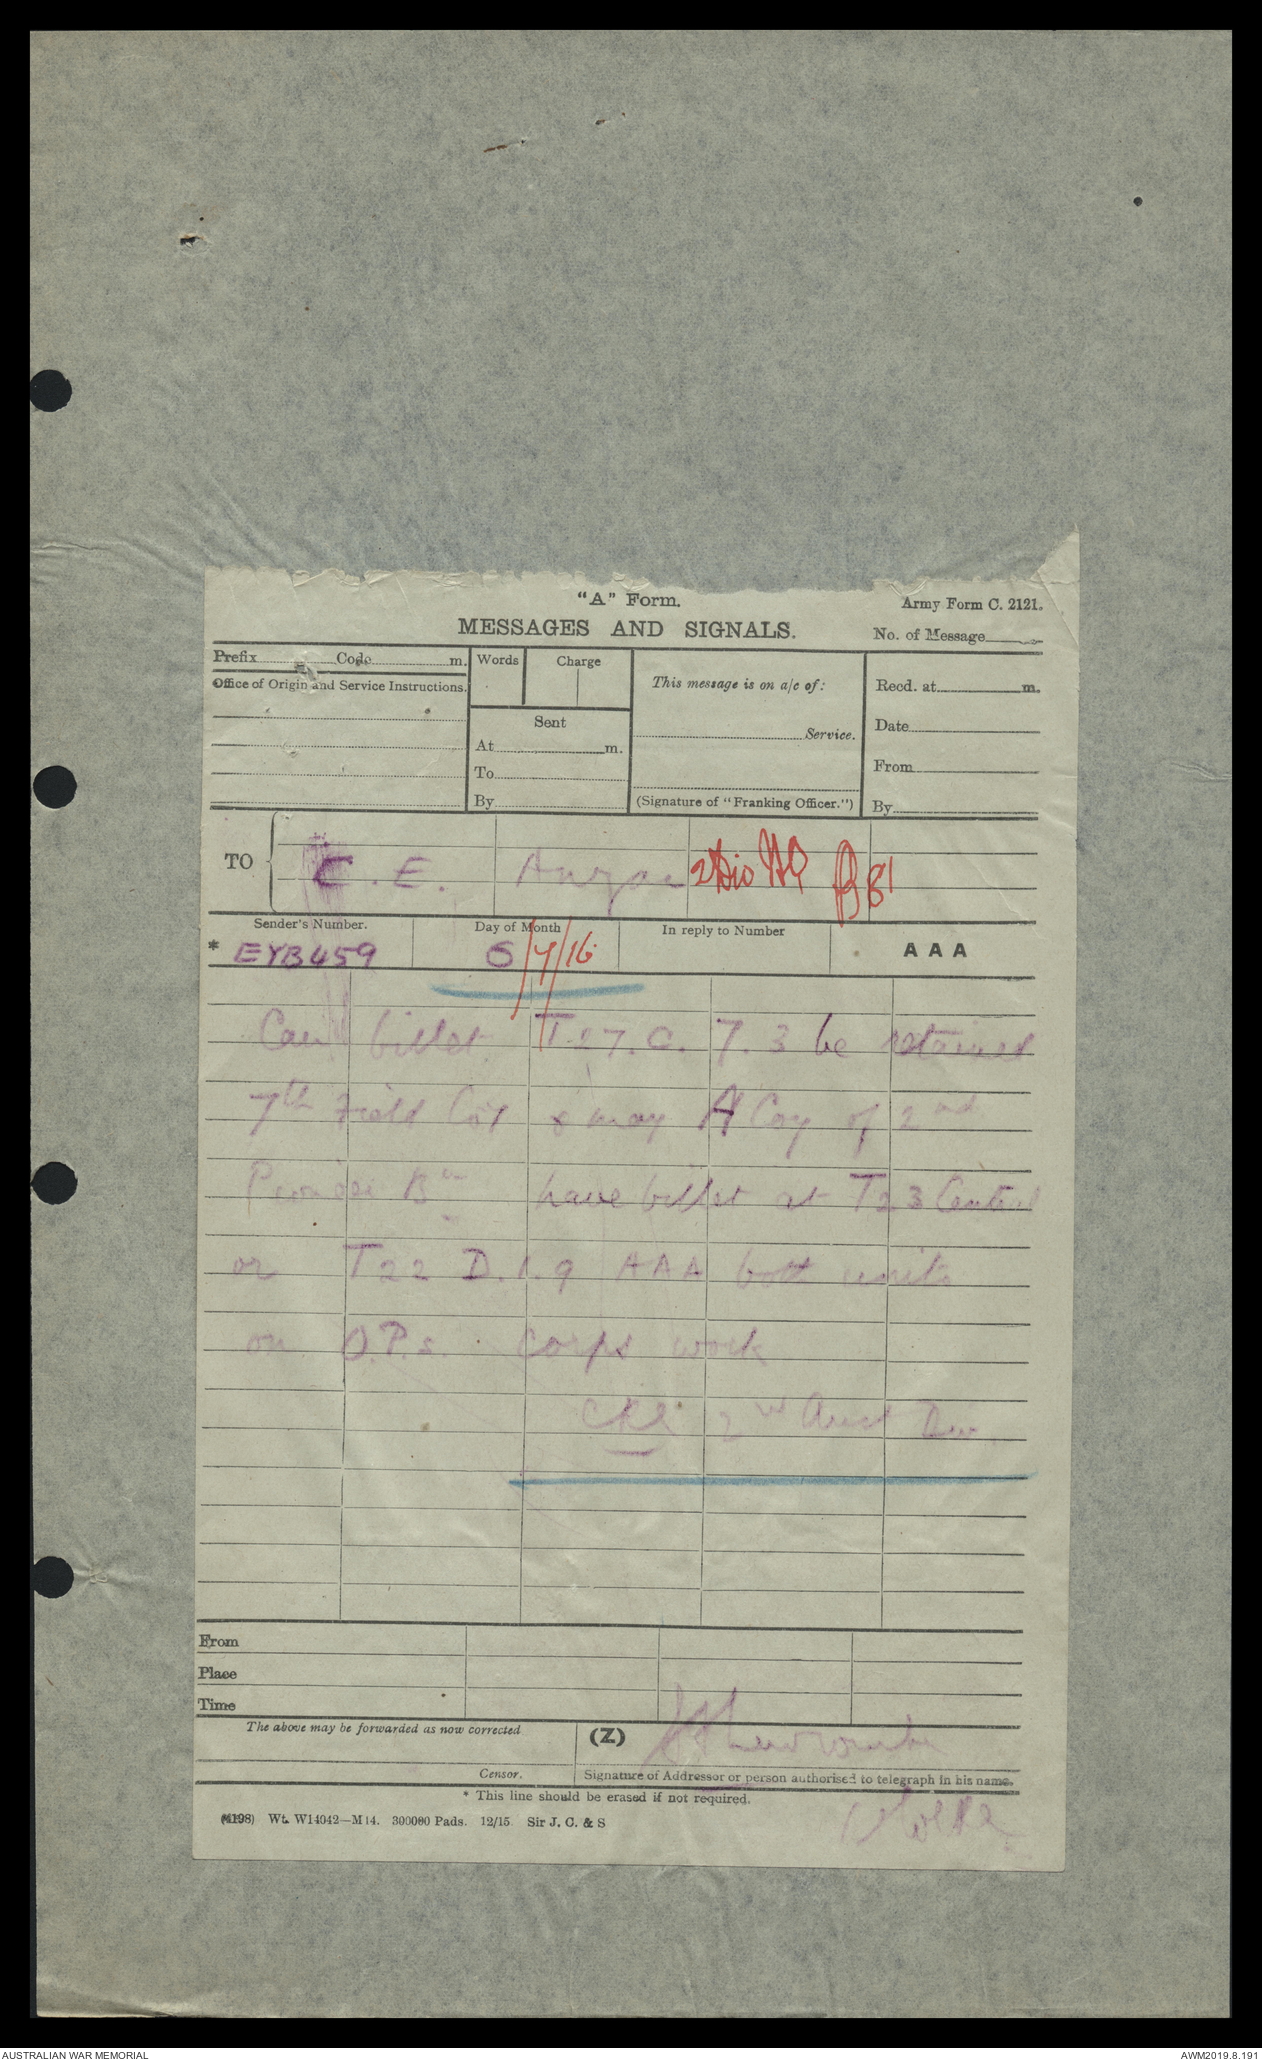 "A" Form.
Army Form C. 2121.
MESSAGES AND SIGNALS.
No. of Message
Prefix Code m.
Words Charge
This message is on a/c of:
Recd. at m.
Office of Origin and Service Instructions.
Sent
Service.
Date
At m.
To
From
By
(Signature of "Franking Officer.")
By
TO C.E. Anzac 2 Div HQ
Sender's Number. Day of Month In reply to Number
* EYB459 6/7/16 AAA
Can billet T27.C.7.3 be retained
7th Field Coy & may A Coy of 2nd
Pioneer Bn have billet at T23 Central
or T22 D.1.9 AAA both units
on O.P.s. corps work
CRE 2nd Aust Div
From
Place
Time
The above may be forwarded as now corrected
(Z)
Censor.
Signature of Addressor or person authorised to telegraph in his name.
* This line should be erased if not required.
(4198) Wt. W14042—M14. 300000 Pads. 12/15. Sir J. C. & S
AUSTRALIAN WAR MEMORIAL
AWM2019.8.191